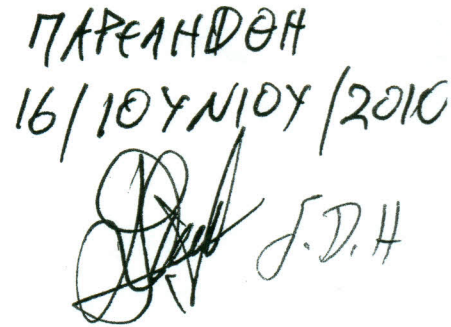 ΠΑΡΕΛΗΦΘΗ
16/ΙΟΥΝΙΟΥ/2010
J.D.H